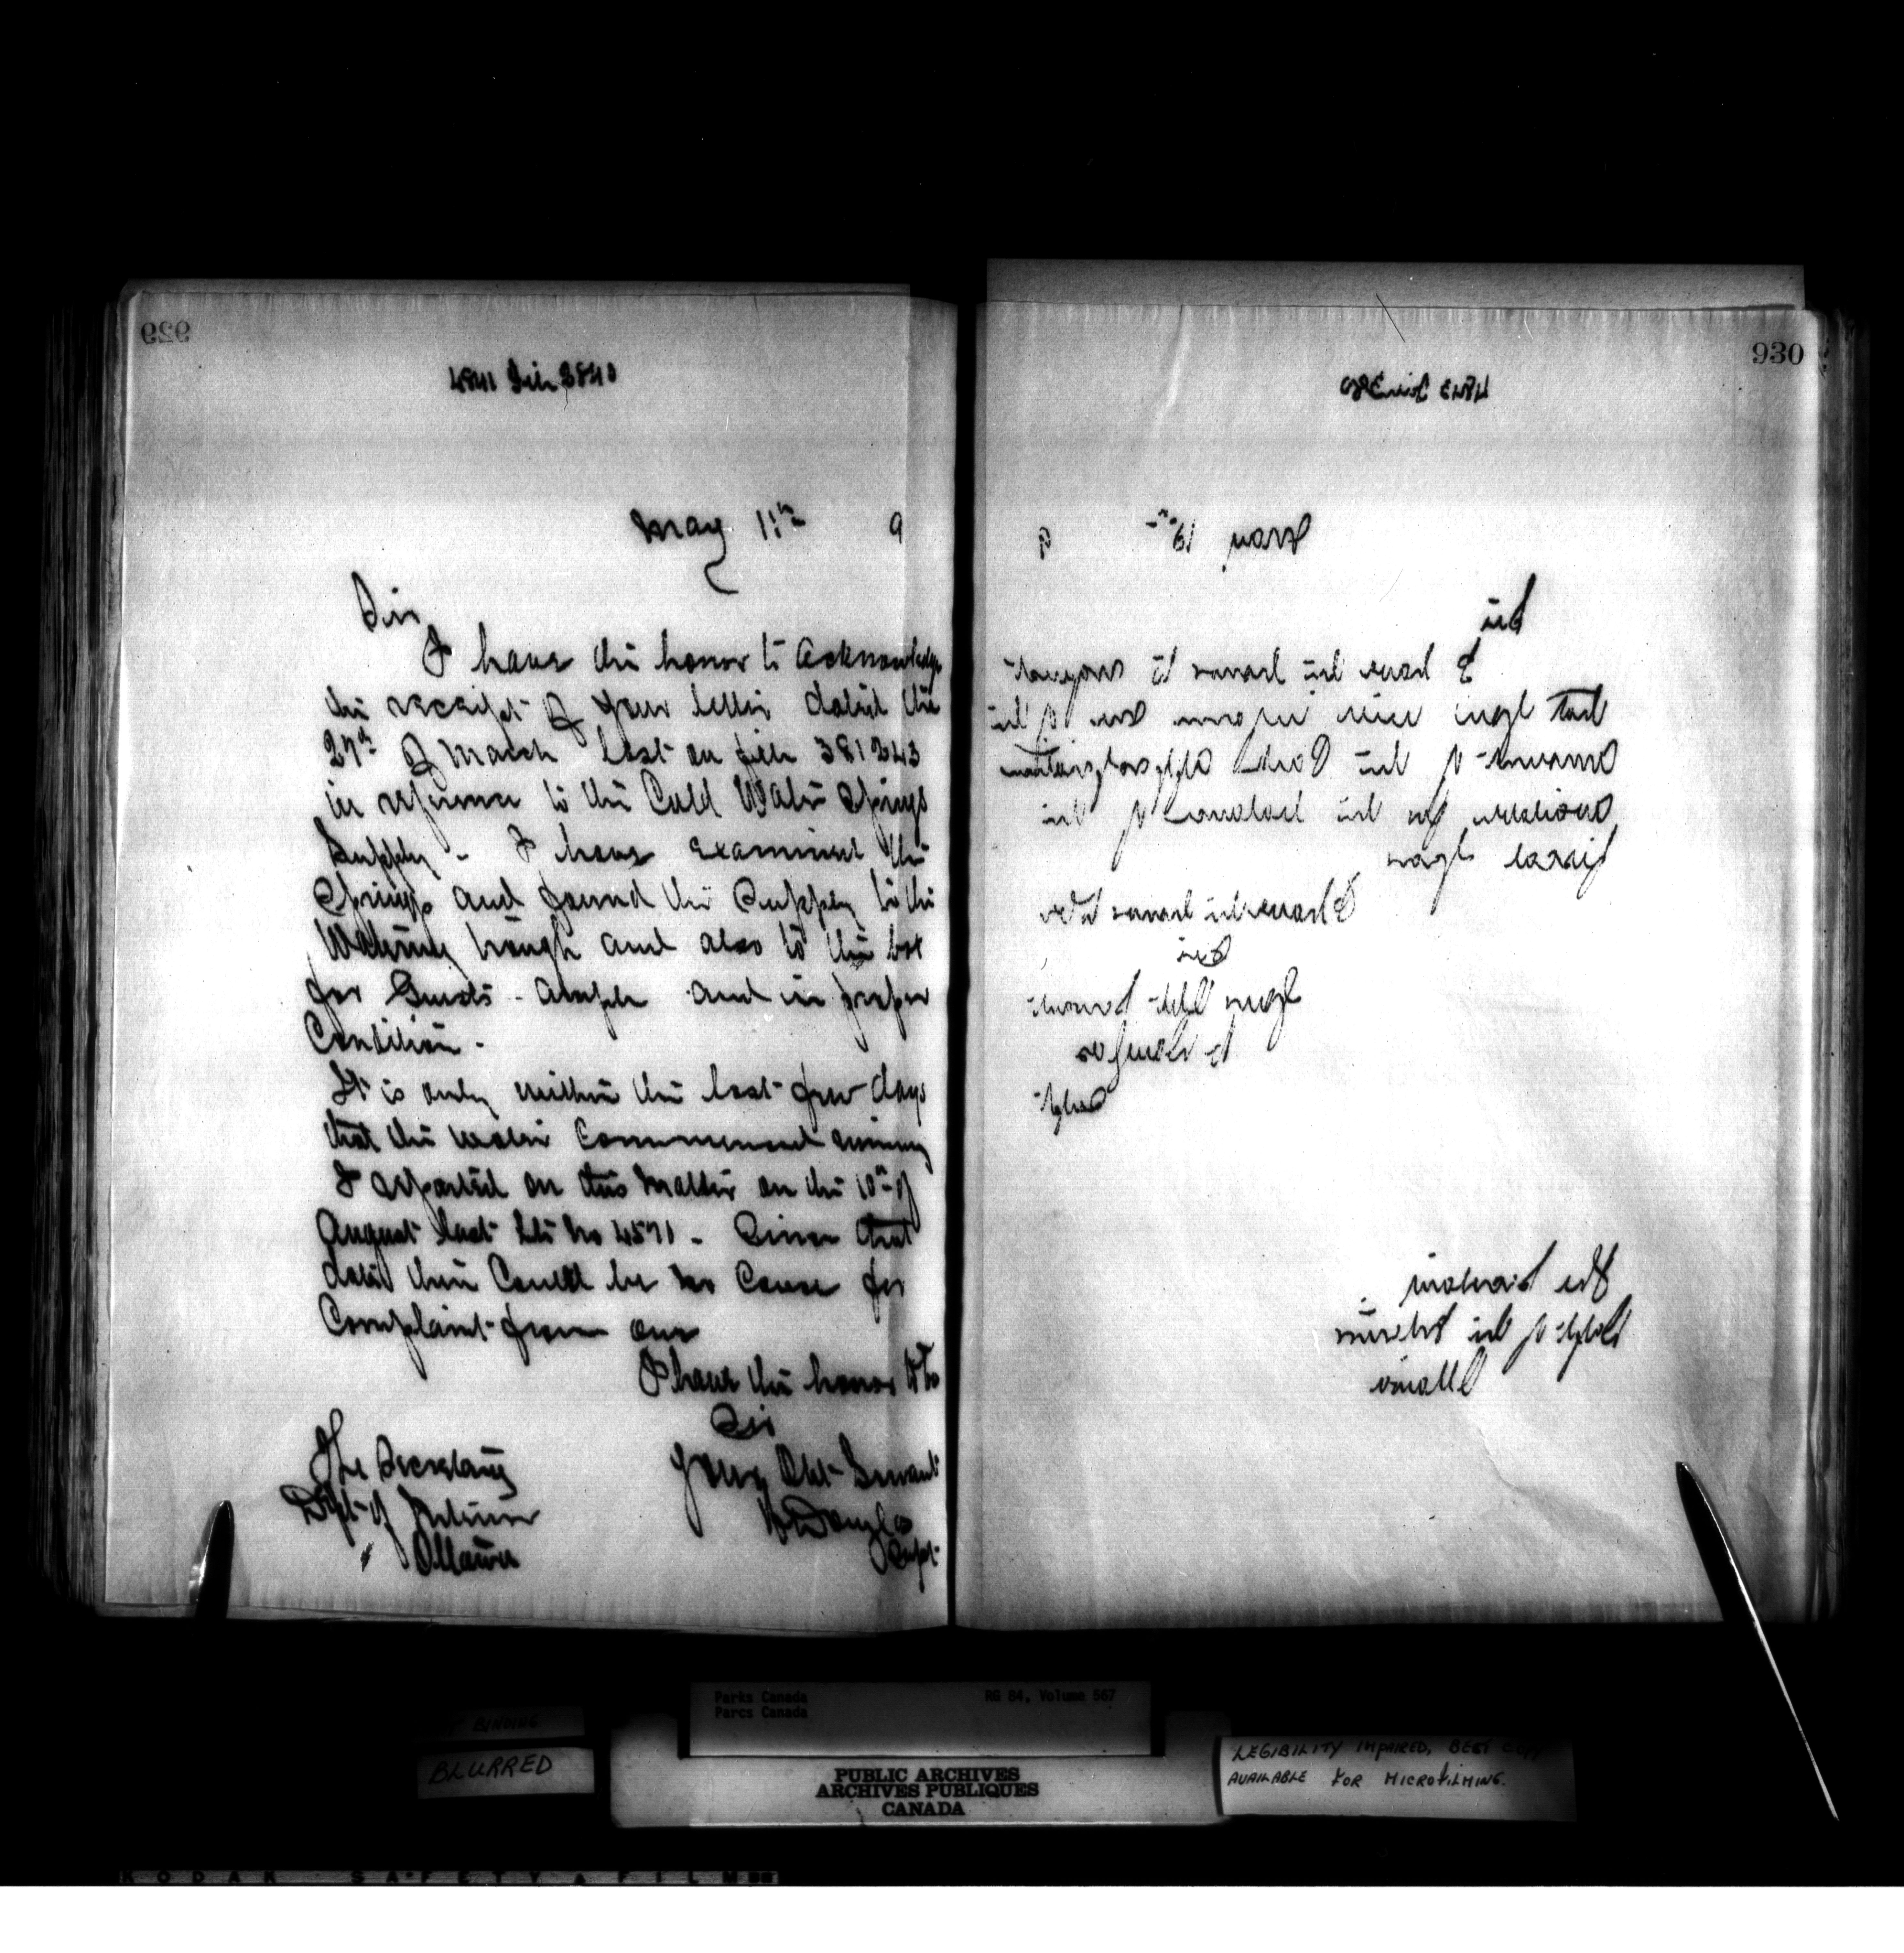 929
May 11th 9
Sir
I have the honor to acknowledge
the receipt of your letter dated the
27th of March last on file 381243
in reference to the Cold Water Springs
Supply - I have examined the
Springs and found the Supply to the
Watering trough and also to the box
for Guests - ample and in proper
Condition -
It is only within the last few days
that the water Commenced running
I reported on this matter on the 10th of
August last No 4571 - Since that
date there Could be no Cause for
Complaint from one
I have the honor to be
Sir
Your Obt Servant
Douglas
Supt
The Secretary
Dept of Interior
Ottawa
930
May 9
Sir
I have the honor to request
that you will inform me of the
amount of the Parks appropriation
available for the balance of the
fiscal year
I have the honor to be
Sir
Your Obt Servant
Douglas
Supt
The Secretary
Dept of the Interior
Ottawa
Parks Canada RG 84, Volume 567
Parcs Canada
BINDING
BLURRED
PUBLIC ARCHIVES
ARCHIVES PUBLIQUES
CANADA
LEGIBILITY IMPAIRED, BEST COPY
AVAILABLE FOR MICROFILMING.
KODAK SAFETY FILM